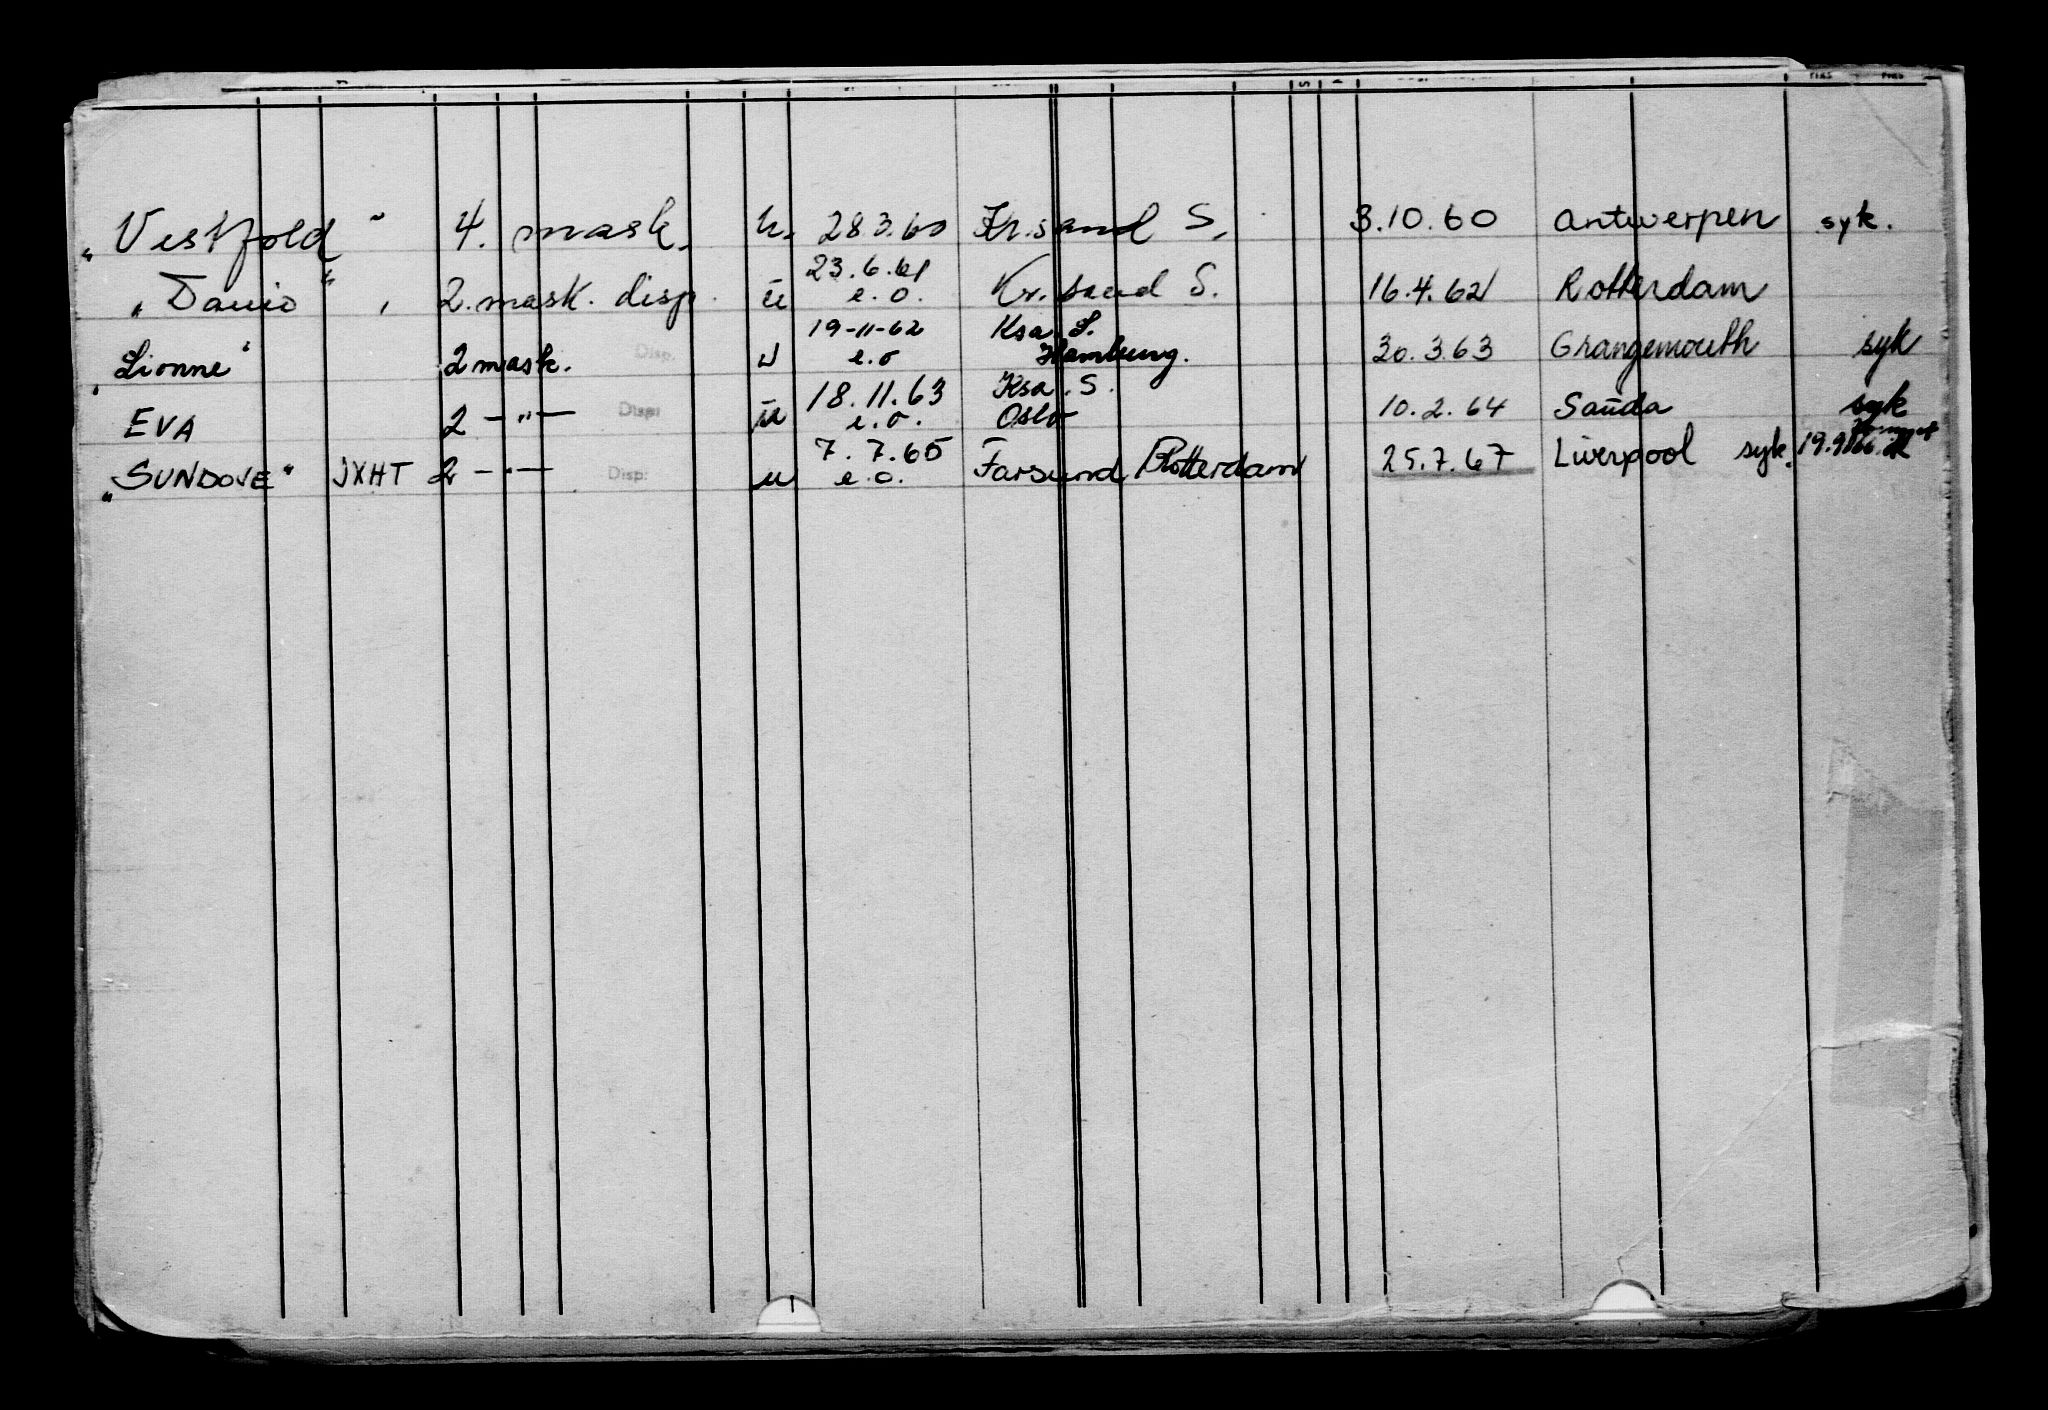 „Vestfold“ 4. mask. u. 28.3.60 Kr.sand S. 3.10.60 Antwerpen syk.
23.6.61
2. mask. disp. u e.o. Kr. sand S. 16.4.62 Rotterdam
19-11-62 Ksa. S.
„Lionne“ 2 mask. Disp. u e.o Hamburg. 30.3.63 Grangemouth syk
18.11.63 Ksa. S.
EVA 2 -"- Disp: u e.o. Oslo 10.2.64 Sauda syk
7.7.65
„SUNDOVE“ JXHT 2 -"- Disp: u e.o. Farsund Rotterdam 25.7.67 Liverpool syk.